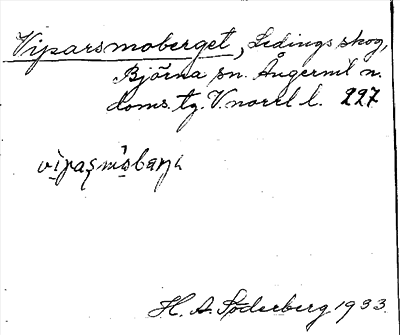 Viparsmoberget, Ledings skog,
Björna sn. Ångerml n.
doms. tg. V.norrl l. 227
H. A. Söderberg 1933.